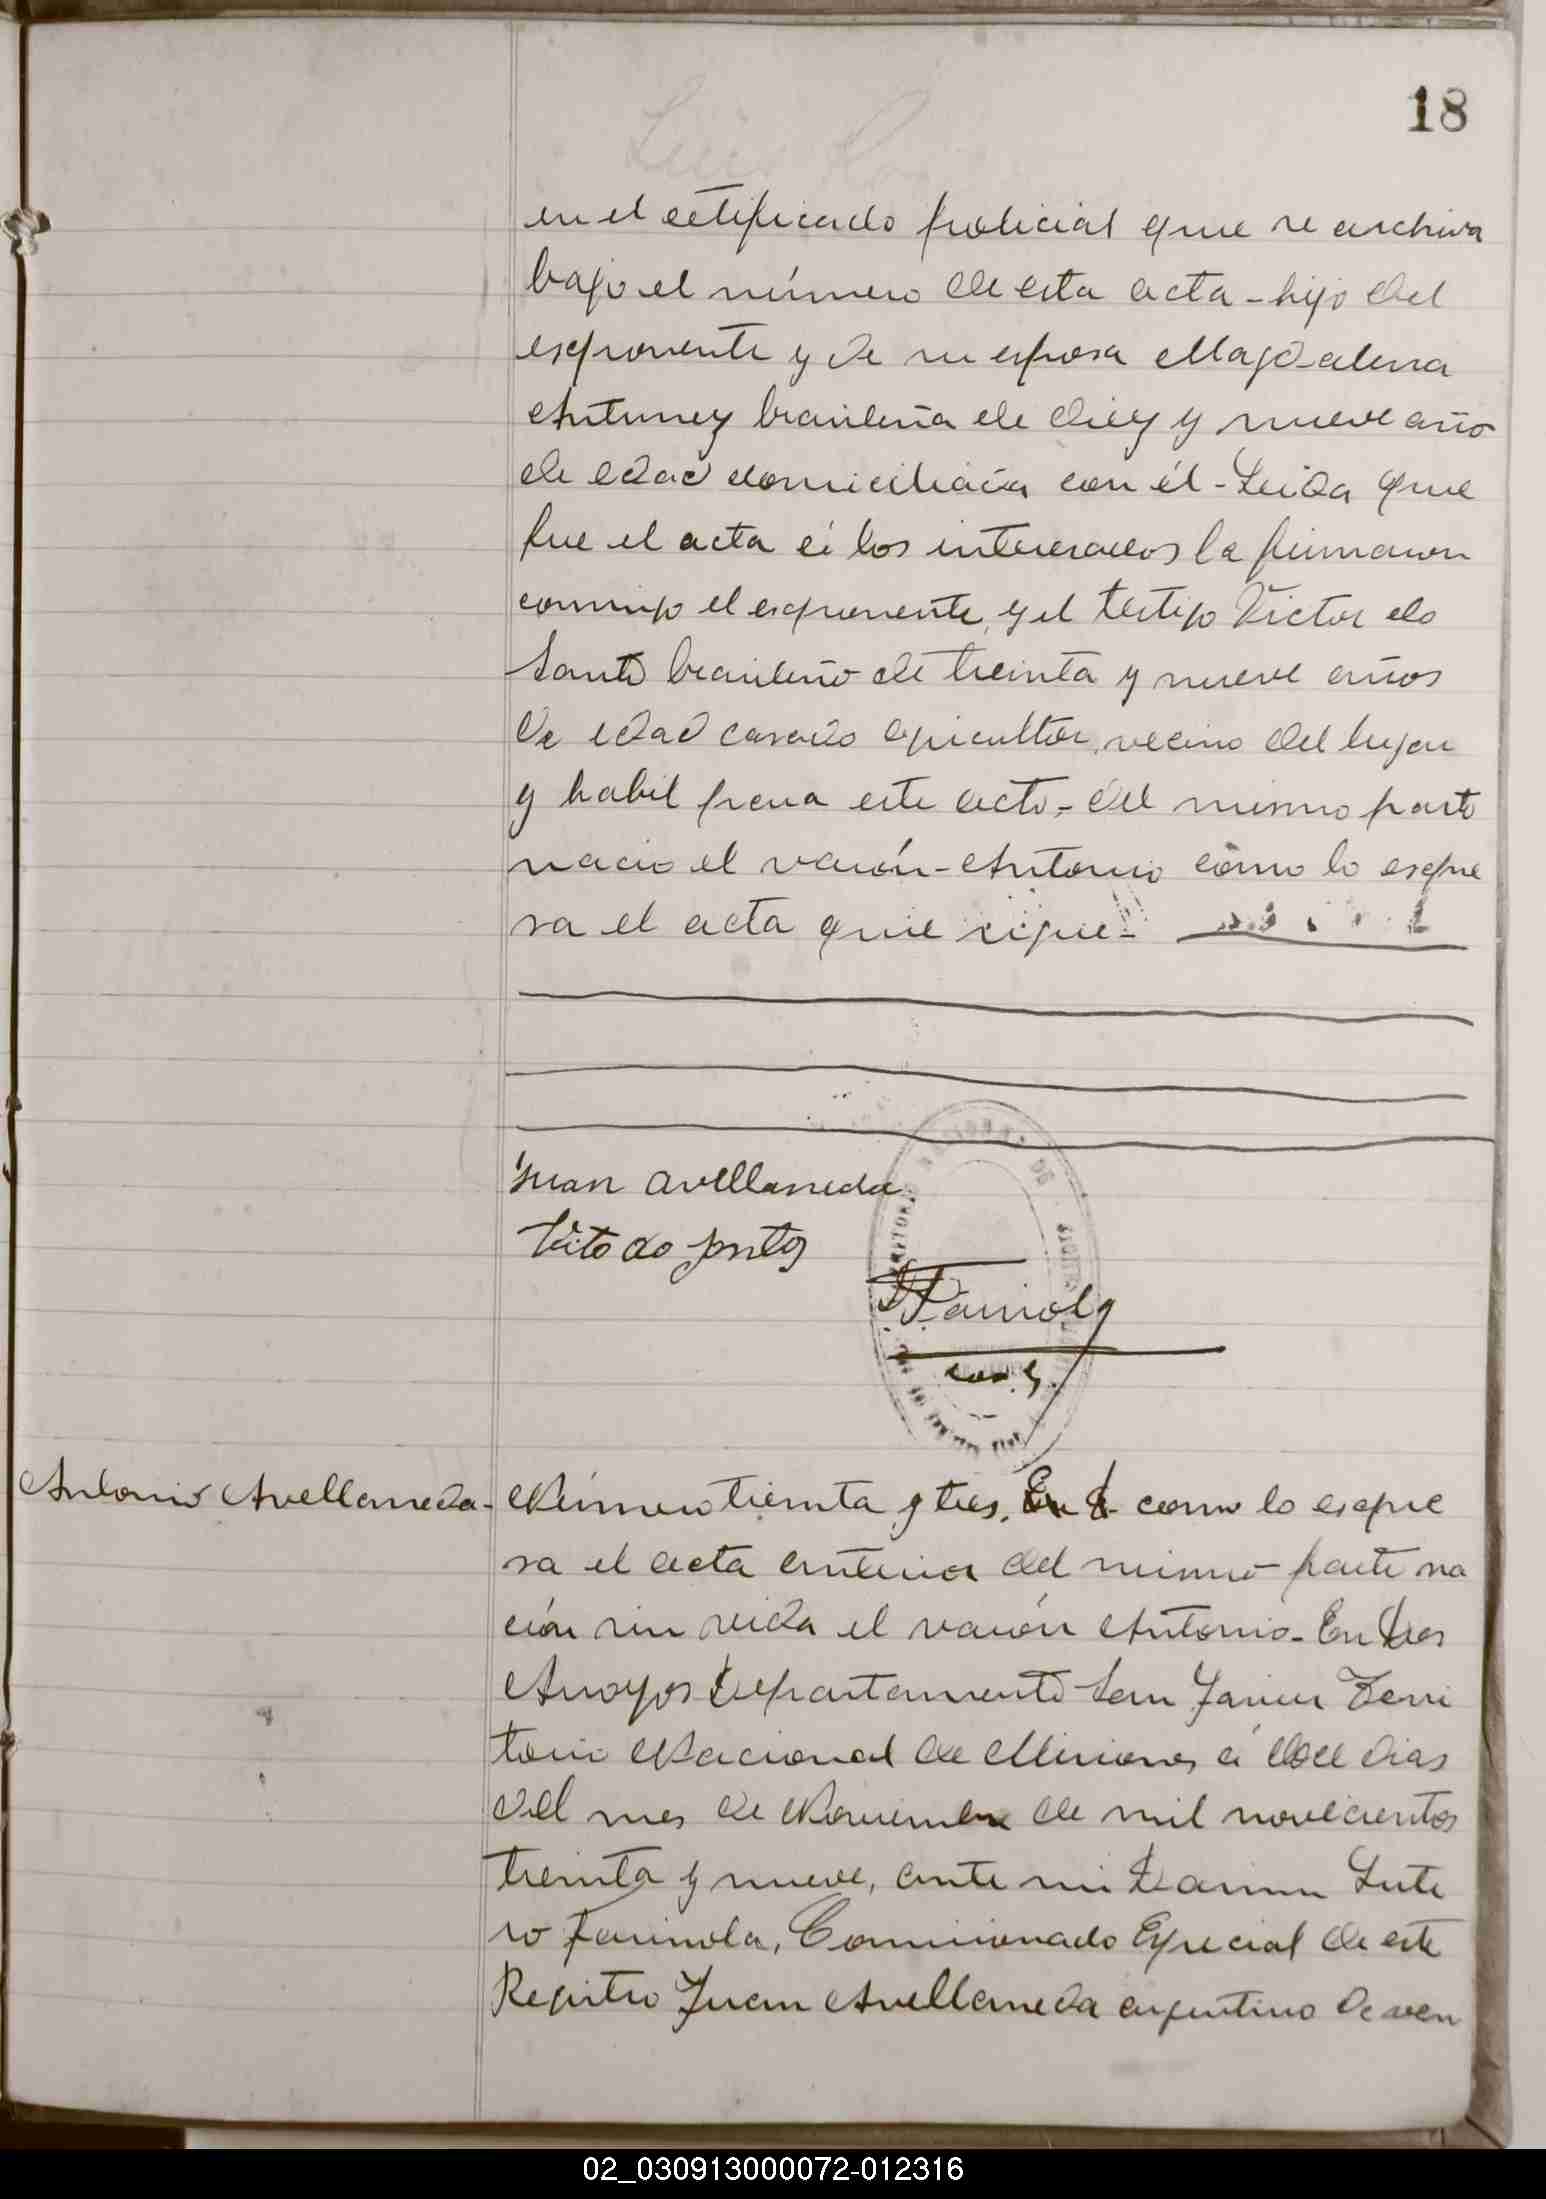 18
en el cetificado policial que se archiva
bajo el número de esta acta - hijo del
esponente y de su esposa Magdalena
Antunez brasileña de diez y nueve año
de edad domiciliada con él - Leida que
fue el acta á los interesados la firmaron
conmigo el esponente, y el testigo Victor do
Santo brasileño de treinta y nueve años
de edad casado agricultor, vecino del lugar
y habil para este acto, - del mismo parto
nacio el varón - Antonio como lo espre
sa el acta que sigue -
Juan Avellaneda.
Vito do
Farinola
Com. E.
Antonio Avellaneda -
Número treinta y tres. como lo espre
sa el acta anterior del mismo parte na
ción sin vida el varón Antonio - En tres
Arroyos Departamento San Javier Terri
torio Nacional de Misiones á doce dias
del mes de Noviembre de mil novecientos
treinta y nueve, ante mi Lute
ro Farinola, Comisionado Especial de este
Registro Juan Avellaneda argentino de vein
02_030913000072-012316